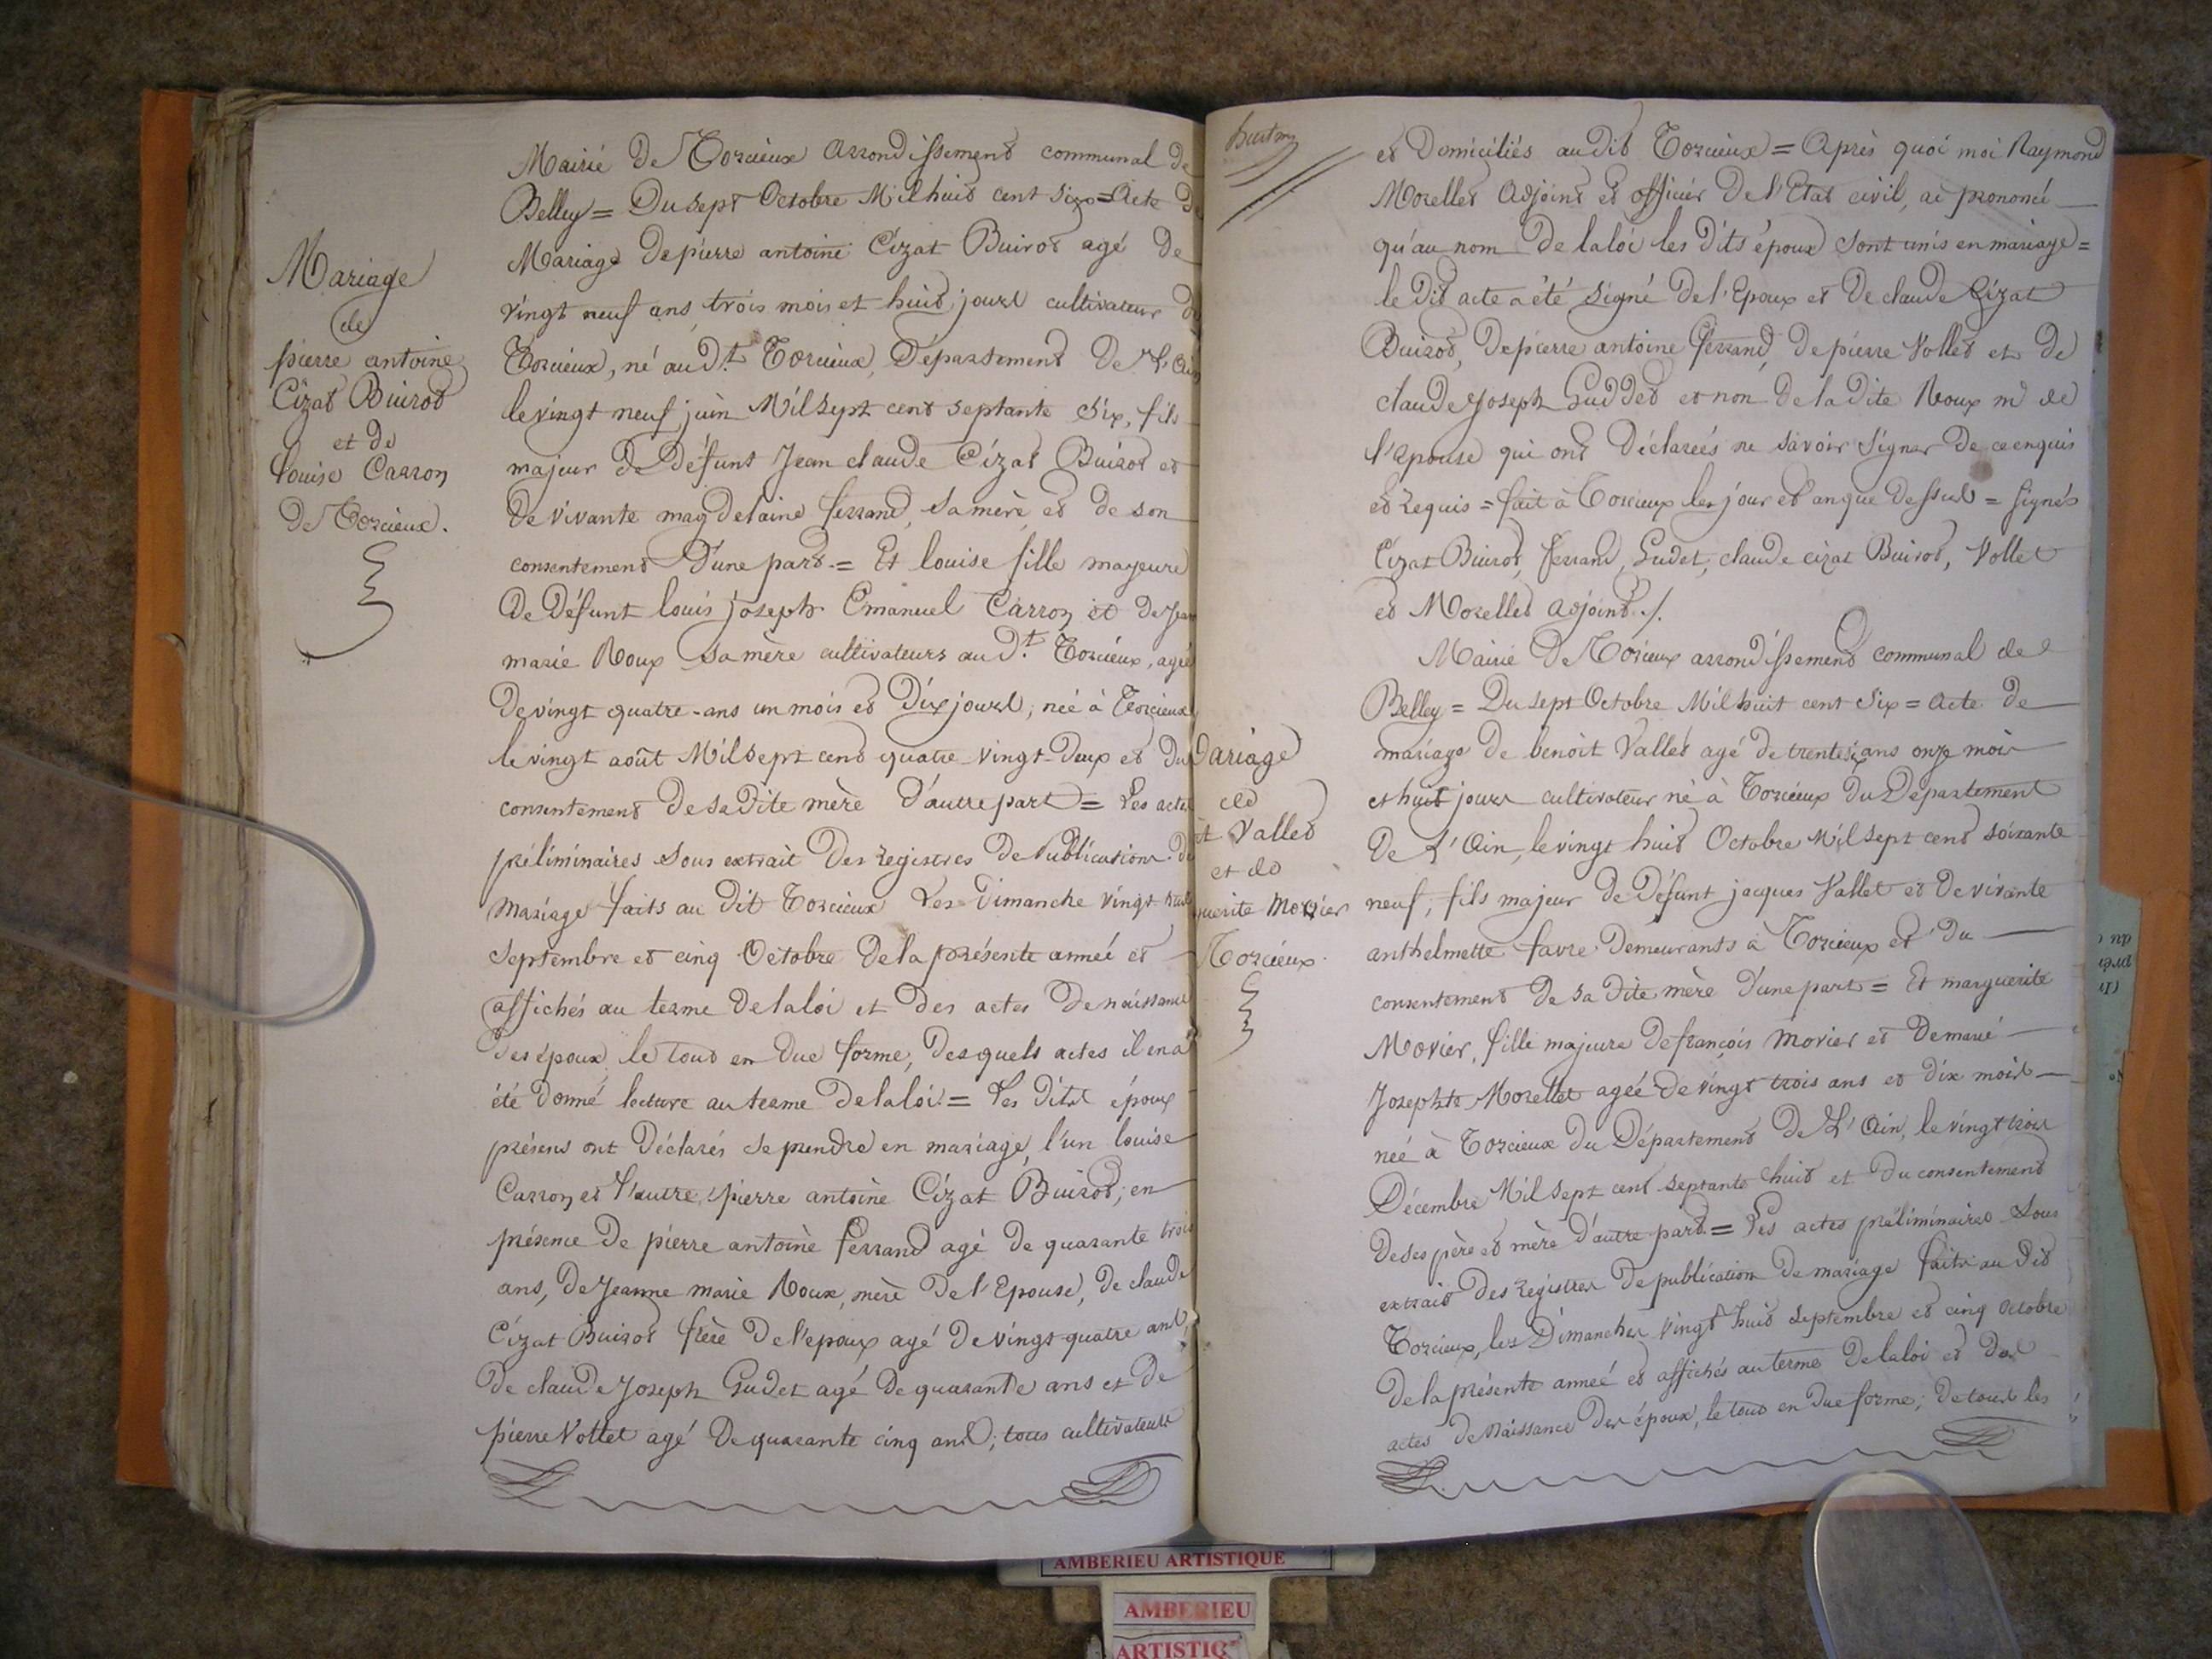 Mariage
de
pierre antoine
Cizat Buirod
et de
louise Carron
De Torcieux.
Mairie De Torcieux arrondissement communal de
Belley = Du sept Octobre Mil huit cent six = Acte de
Mariage de pierre antoine Cizat Buirod agé de
vingt neuf ans trois mois et huit jours cultivateur de
Torcieux, né au dt. Torcieux, Département De L'Ain
le vingt neuf juin Mil sept cent septante Six, fils
majeur de Défunt Jean claude Cizat Buirod et
de vivante magdelaine ferrand, sa mère et de son
consentement D'une part = Et louise fille mayeure
De Défunt louis joseph Emanuel Carron et de Jean
marie Roux sa mère cultivateurs au dt. Torcieux, agée
de vingt quatre ans un mois et dix jours, née à Torcieux
le vingt août Mil sept cent quatre-vingt-Deux et du
consentement de sa Dite mère d'autre part = Les actes
préliminaires sous extrait Des registres de Publications de
Mariage faits au Dit Torcieux Les Dimanche vingt huit
Septembre et cinq Octobre De la présente année et
affichés au terme de la loi et des actes De naissance
Des époux, le tout en due forme, desquels actes il en a
été donné lecture au terme De la loi = Les Dits époux
présens ont Déclarés se prendre en mariage, l'un louise
Carron et l'autre pierre antoine Cizat Buirod, en
présence De pierre antoine ferrand agé De quarante trois
ans, De Jeanne marie Roux, mère De l'Epouse, De claude
Cizat Buirod frère De l'epoux agé De vingt-quatre ans,
De claude Joseph Gudet agé De quarante ans et De
pierre Vollet agé De quarante cinq ans, tous cultivateurs
et Domiciliés au dit Torcieux = Après quoi moi Raymond
Morellet Adjoint et officier De l'Etat civil, ai prononcé
qu'au nom De la loi les Dits époux sont unis en mariage =
le Dit acte a été signé De l'Epoux et De claude Cizat
Buirod, De pierre antoine ferrand, de pierre Vollet et de
claude Joseph Guddet et non de la Dite Roux ni de
l'Epouse qui ont Déclarées ne savoir signer de ce enquis
et requis = fait à Torcieux les jour et an que Dessus = Signés
Cizat Buirod, ferrand, Gudet, claude cizat Buirod, Vollet
et Morellet adjoint ./.
Mariage
de
it Vallet
et de
guerite Morier
Torcieux
Mairie De Torcieux arrondissement communal de
Belley = Du sept Octobre Mil huit cent Six = acte de
mariage de benoit Vallet agé de trente six ans onze mois
et huit jours cultivateur né à Torcieux Du Département
De L'Ain, le vingt huit Octobre Mil sept cent soixante
neuf, fils majeur De Défunt jacques Vallet et De vivante
anthelmette favre Demeurants à Torcieux et Du
consentement De sa dite mère D'une part = Et marguerite
Morier, fille majeure De françois Morier et De marie
Josephte Morellet agée De vingt trois ans et dix mois
née à Torcieux Du Département De L'Ain, le vingt trois
Décembre Mil sept cent septante huit et Du consentement
De ses père et mère D'autre part = Les actes préliminaires sous
extrait Des registres De publication De mariage faits au Dit
Torcieux, les Dimanches vingt huit septembre et cinq octobre
De la présente année et affichés au terme De la loi et Des
actes De Naissance Des époux, le tout en Due forme; De tout les
AMBERIEU ARTISTIQUE
AMBERIEU
ARTISTIQ